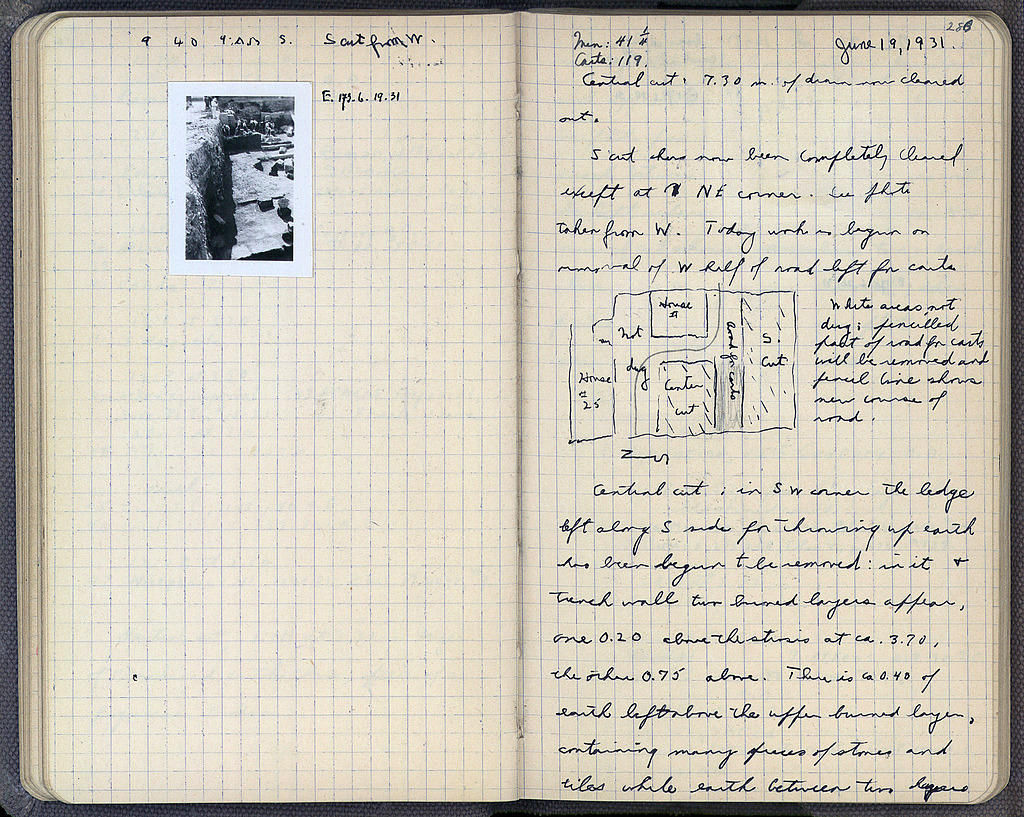 S cut from W.
E. 173. 6. 19. 31
286
Men: 41 1/4
June 19, 1931.
Carts: 119.
Central cut: 7.30 m. of drain now cleared
out.
S cut has now been completely cleared
except at NE corner. See photo
taken from W. Today work is begun on
removal of W half of road left for carts
House
Not
dug
Road for carts
S.
Cut
House
25
Center
cut
White areas not
dug; pencilled
part of road for carts
will be removed and
pencil line shows
new course of
road.
Central cut: in SW corner the ledge
left along S side for throwing up earth
has been begun to be removed: in it +
trench wall two burned layers appear,
one 0.20 above the stosis at ca. 3.70,
the other 0.75 above. There is ca 0.40 of
earth left above the upper burned layer,
containing many pieces of stones and
tiles while earth between two layers